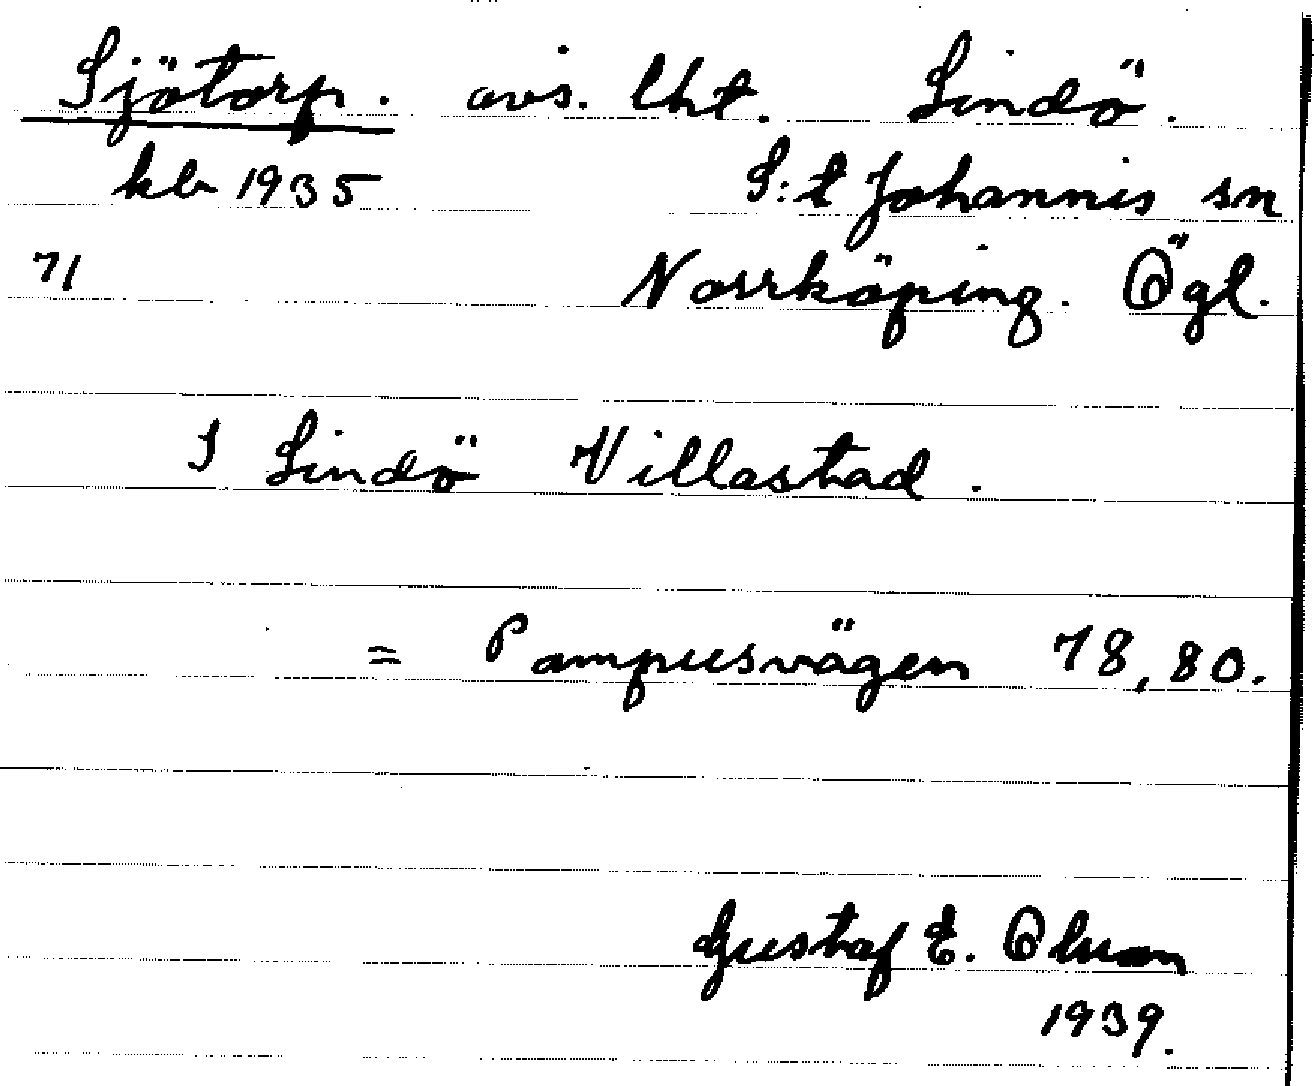 Sjötorp. avs. lht. Lindö.
kb 1935 S:t Johannis sn
71 Norrköping. Ögl.
I Lindö Villastad.
= Pampusvägen 78, 80.
Gustaf E. Olsson
1939.